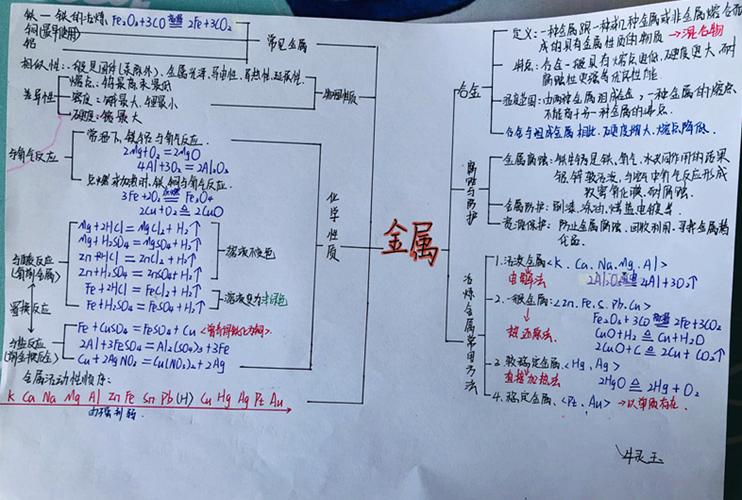 铁—铁的冶炼 Fe₂O₃+3CO 高温 2Fe+3CO₂
铜(最早使用)
铝
常见金属
相似性:一般是固体(汞除外)、金属光泽、导电性、导热性、延展性.
差异性
熔点:钨最高汞最低
密度:锇最大,锂最小
硬度:铬最大
物理性质
与氧气反应
常温下,镁铝与氧气反应
2Mg+O₂=2MgO
4Al+3O₂=2Al₂O₃
点燃或加热时,铁、铜与氧气反应
3Fe+2O₂ 点燃 Fe₃O₄
2Cu+O₂ ≜ 2CuO
化学性质
与酸反应
(氢前金属)
置换反应
Mg+2HCl=MgCl₂+H₂↑
Mg+H₂SO₄=MgSO₄+H₂↑
Zn+2HCl=ZnCl₂+H₂↑
Zn+H₂SO₄=ZnSO₄+H₂↑
溶液不变色
Fe+2HCl=FeCl₂+H₂↑
Fe+H₂SO₄=FeSO₄+H₂↑
溶液变为浅绿色
与盐反应
Fe+CuSO₄=FeSO₄+Cu
2Al+3FeSO₄=Al₂(SO₄)₃+3Fe
Cu+2AgNO₃=Cu(NO₃)₂+2Ag
金属活动性顺序:
K Ca Na Mg Al Zn Fe Sn Pb (H) Cu Hg Ag Pt Au
由强到弱
金属
合金
定义:一种金属跟一种或几种金属或非金属熔合而
成的具有金属性质的物质→混合物
特点:合金一般具有熔点更低、硬度更大、耐
腐蚀性更强等优良性能
由两种金属组成合金,一种金属的熔点
不能高于另一种金属的沸点
合金与组成金属相比,硬度增大,熔点降低.
腐蚀与防护
金属腐蚀:铁生锈是铁、氧气、水共同作用的结果
与空气中氧气反应形成
致密氧化膜,耐腐蚀.
金属防护:刷漆、涂油、
资源保护:防止金属腐蚀,回收利用,寻找金属替
代品.
冶炼金属常用方法
1.活泼金属<K. Ca. Na. Mg. Al>
电解法 2Al₂O₃ 通电 4Al+3O₂↑
2.一般金属:<Zn. Fe. S. Pb. Cu>
热还原法
Fe₂O₃+3CO 高温 2Fe+3CO₂
CuO+H₂ ≜ Cu+H₂O
2CuO+C ≜ 2Cu+CO₂↑
3.较稳定金属.<Hg, Ag>
直接加热法 2HgO ≜ 2Hg+O₂
4.稳定金属.<Pt. Au>→以单质存在.